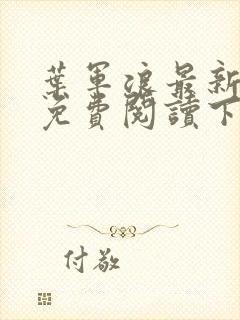 葉軍浪最新
免費閱讀下
付敬